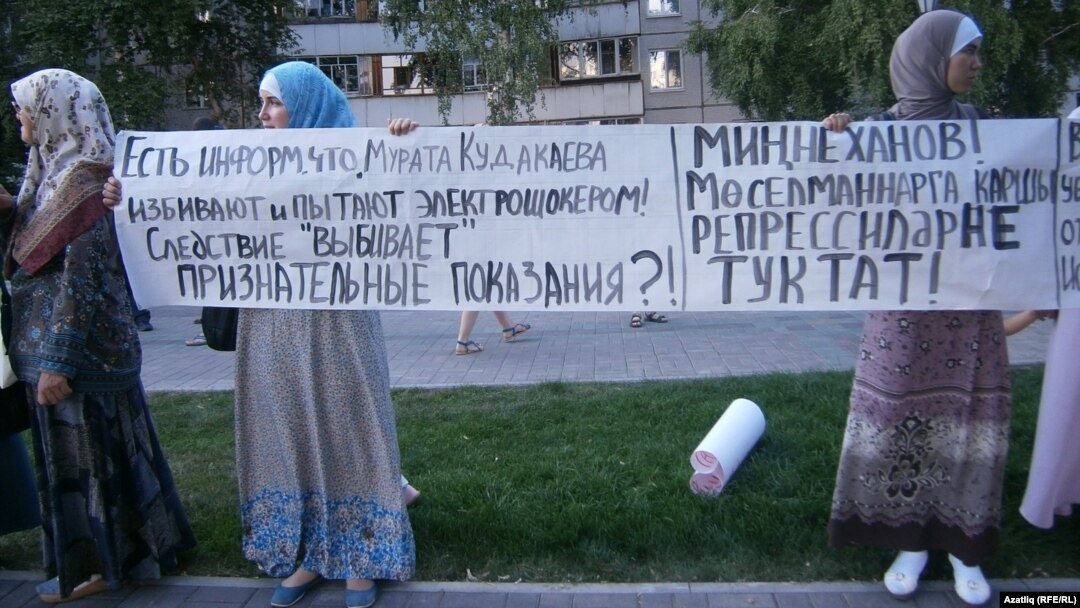 Есть информ. что, Мурата Кудакаева
избивают и пытают электрошокером!
Следствие "выбивает"
признательные показания?!
Миңнеханов!
Мөселманнарга каршы
репрессиләрне
туктат!
Azatliq (RFE/RL)